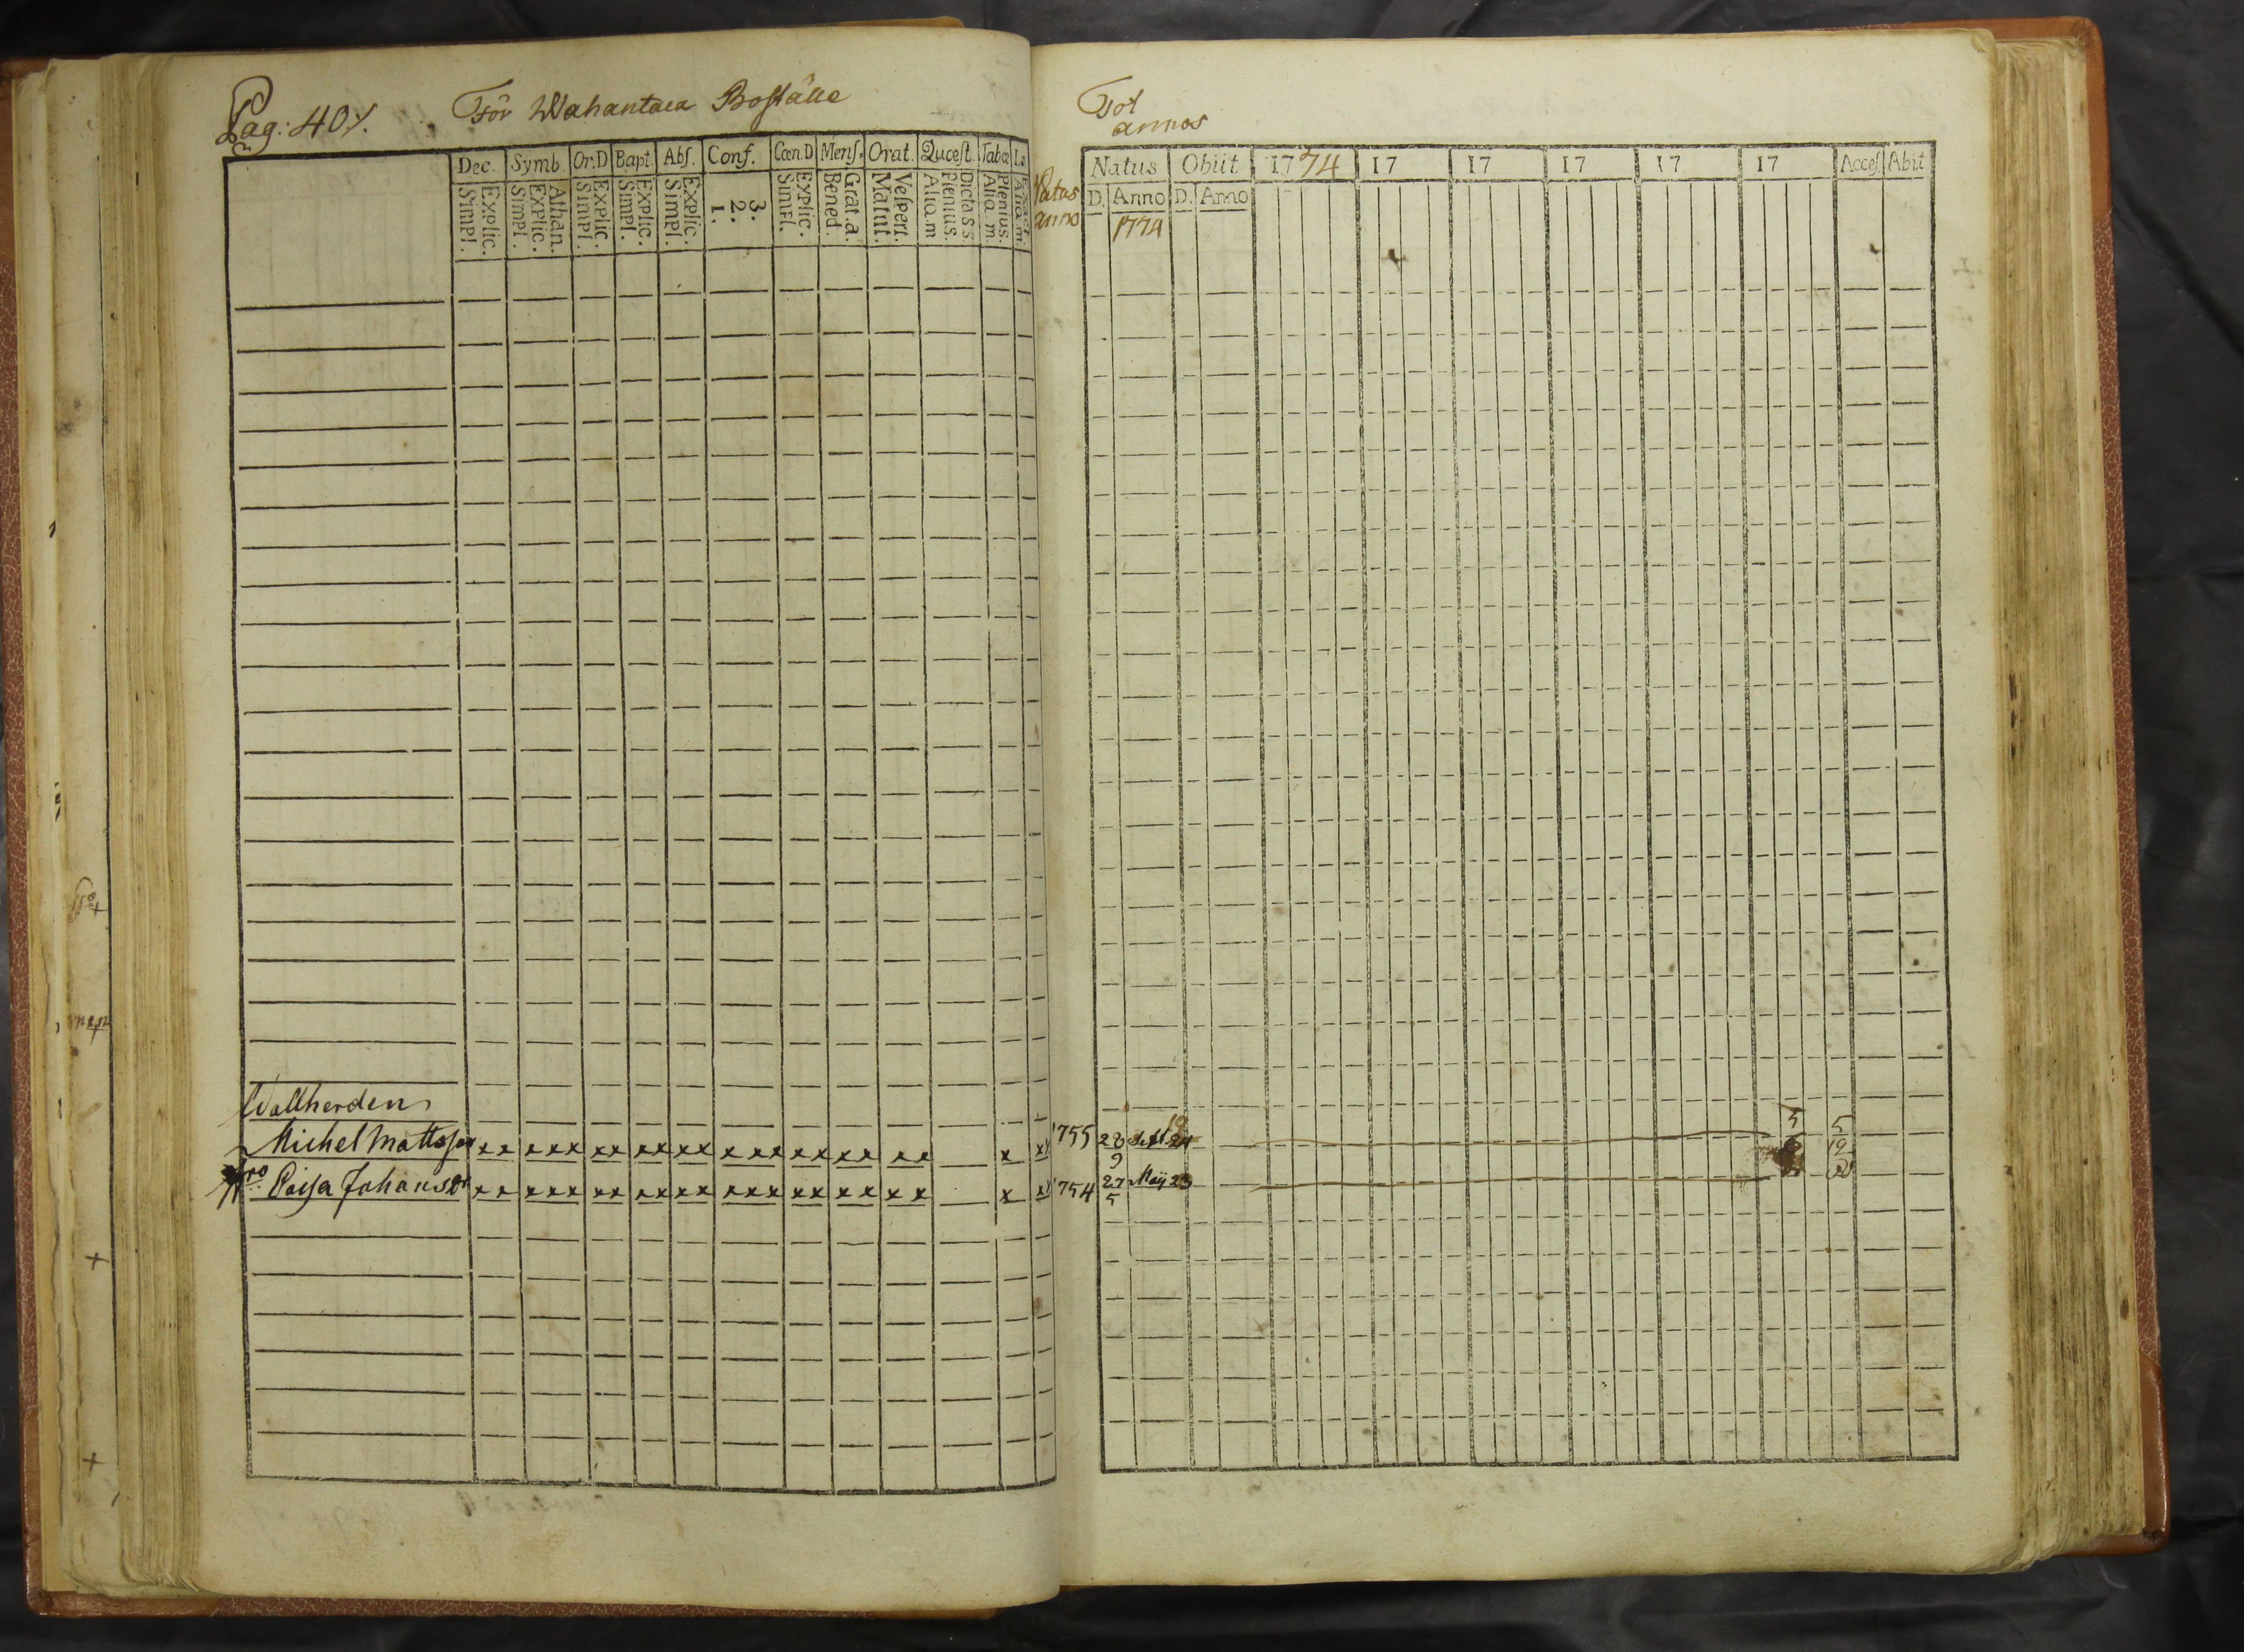 Pag: 40
För Wahantaca Boställe
Dec. Symb. Or.D Bapt. Abſ. Conf. Cœn.D Menſ. Orat. Quœſt. Tabœ
Explic. Simpl. Athan. Explic. Simpl. Explic. Simpl. Explic. Simpl. Explic. Simpl. 3. 2. 1. Explic. Simpl. Grat.a. Bened. Veſpert. Matut. Dicta s s Plenius. Aliq.m Plenius. Aliq.m
Wallherden
Michel Mattsson x x x x x x x x x x x x x x x x x x x x x x
Hro Caisa Johansdr x x x x x x x x x x x x x x x x x x x x x x
Tot
annos
Natus Obiit 1774 17 17 17 17 17 Acceſ Abit
Natus anno D. Anno D. Anno
1774
1755 28 9 Sept 5 5 19
1754 27 5 Maÿ